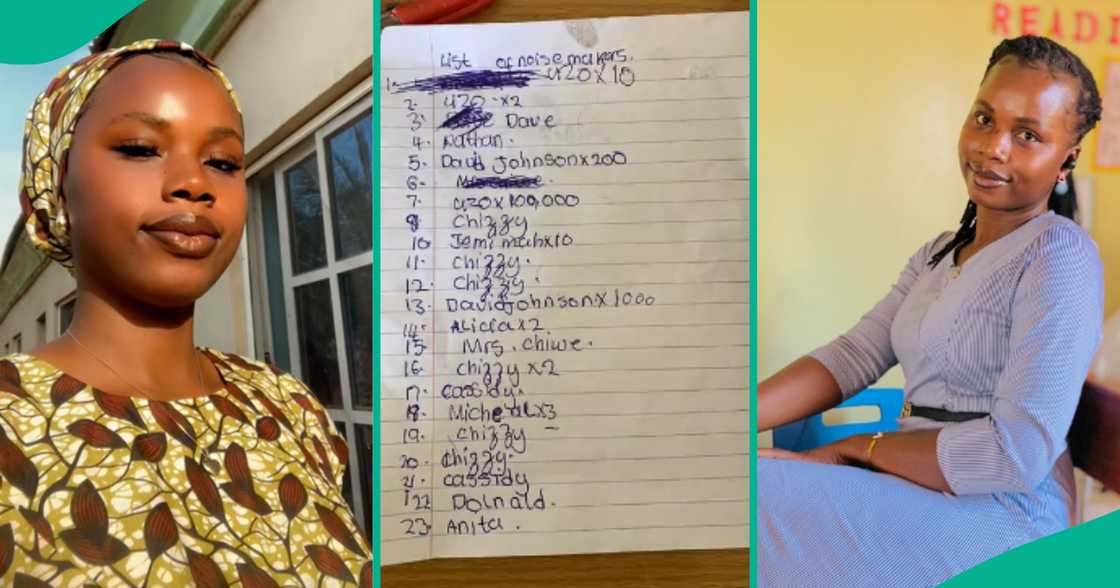 READI
List of noise makers.
1. 420x10
2. 420 -x2
3. Dave
4. Nathan.
5. David Johnsonx200
6.
7. 420x100,000
8. Chizzy
10. Jemimahx10
11. Chizzy.
12. Chizzy.
13. DavidJohnsonx1000
14. Aliciax2.
15. Mrs. Chiwe.
16. Chizzy x2
17. Cassidy.
18. Michealx3
19. Chizzy –
20. Chizzy.
21. Cassidy
22 Dolnald.
23. Anita.